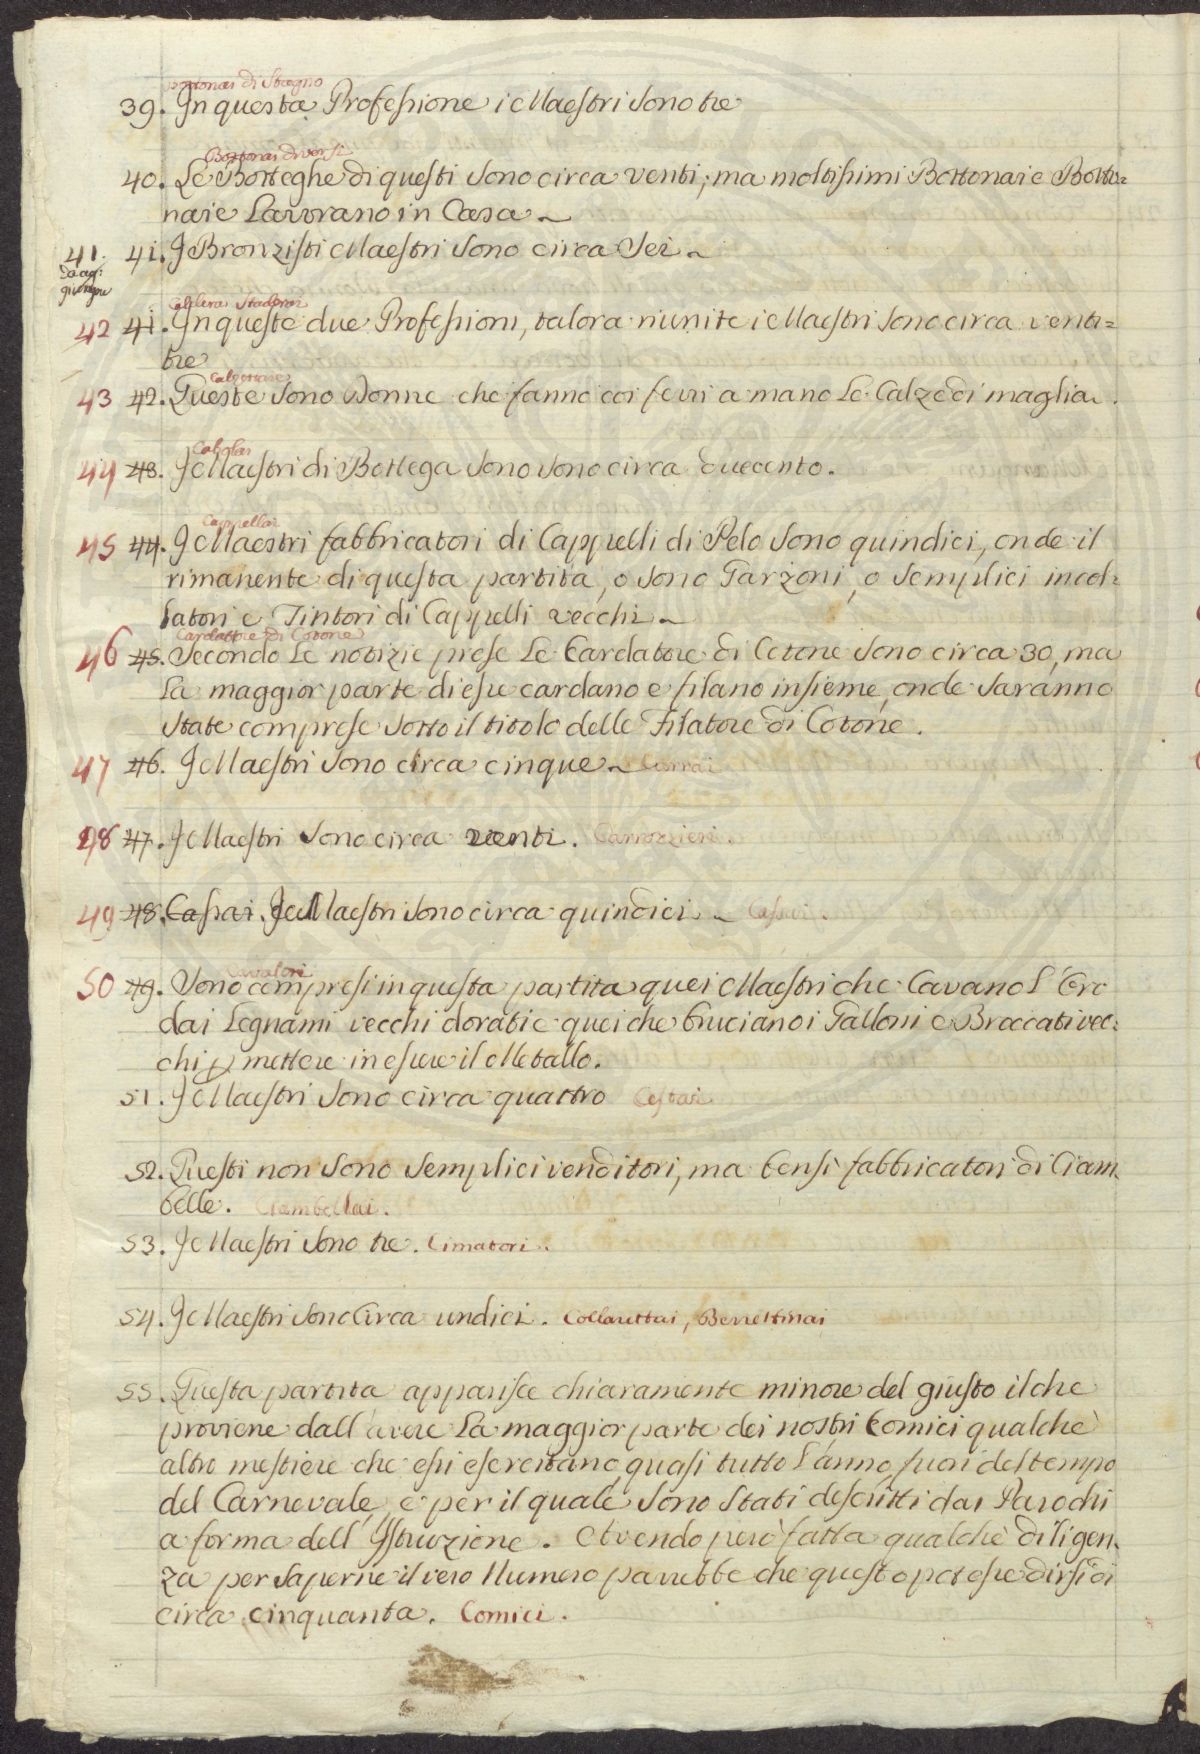 Bottonai di Stagno
39. In questa Professione i Maestri sono tre
Bottonai diversi
40. Le Botteghe di questi sono circa venti, ma moltissimi Bottonai e Botto=
naie Lavorano in Casa
41. 41. I Bronzisti Maestri sono circa Sei
da ag=
giungere
Staderai
42 41. In queste due Professioni, talora riunite i Maestri sono circa venti=
tre
Calzettaie
43 42. Queste sono Donne che fanno coi ferri a mano Le Calze di maglia.
Calzolai
44 43. I Maestri di Bottega sono sono circa duecento.
Cappellai
45 44. I Maestri fabbricatori di Cappelli di Pelo sono quindici, onde il
rimanente di questa partita, o sono Garzoni, o semplici incol=
latori e Tintori di Cappelli vecchi
Cardatore di Cotone
46 45. Secondo Le notizie prese Le Cardatore di Cotone sono circa 30, ma
La maggior parte di esse cardano e filano insieme, onde saranno
state comprese sotto il titolo delle Filatore di Cotone.
47 46. I Maestri sono circa cinque Carrai
48 47. I Maestri sono circa venti. Carrozzieri.
49 48. Cassai. I Maestri sono circa quindici Cassai.
Cavalori
50 49. Sono compresi in questa partita quei Maestri che Cavano L'Oro
dai Legnami vecchi dorati e quei che bruciano i Galloni e Broccati vec=
chi p mettere in essere il Metallo.
51. I Maestri sono circa quattro Cestai
52. Questi non sono semplici venditori, ma bensì fabbricatori di Ciam=
belle. Ciambellai.
53. I Maestri sono tre. Cimatori.
54. I Maestri sono Circa undici. Collarettai, Berrettinai
55. Questa partita apparisce chiaramente minore del giusto il che
proviene dall'avere La maggior parte dei nostri Comici qualche
altro mestiere che essi esercitano quasi tutto l'anno fuori del tempo
del Carnevale, e per il quale sono stati descritti dai Parochi
a forma dell'Istruzione. Avendo però fatta qualche diligen=
za per saperne il vero Numero parrebbe che questo potesse dirsi di
circa cinquanta. Comici.